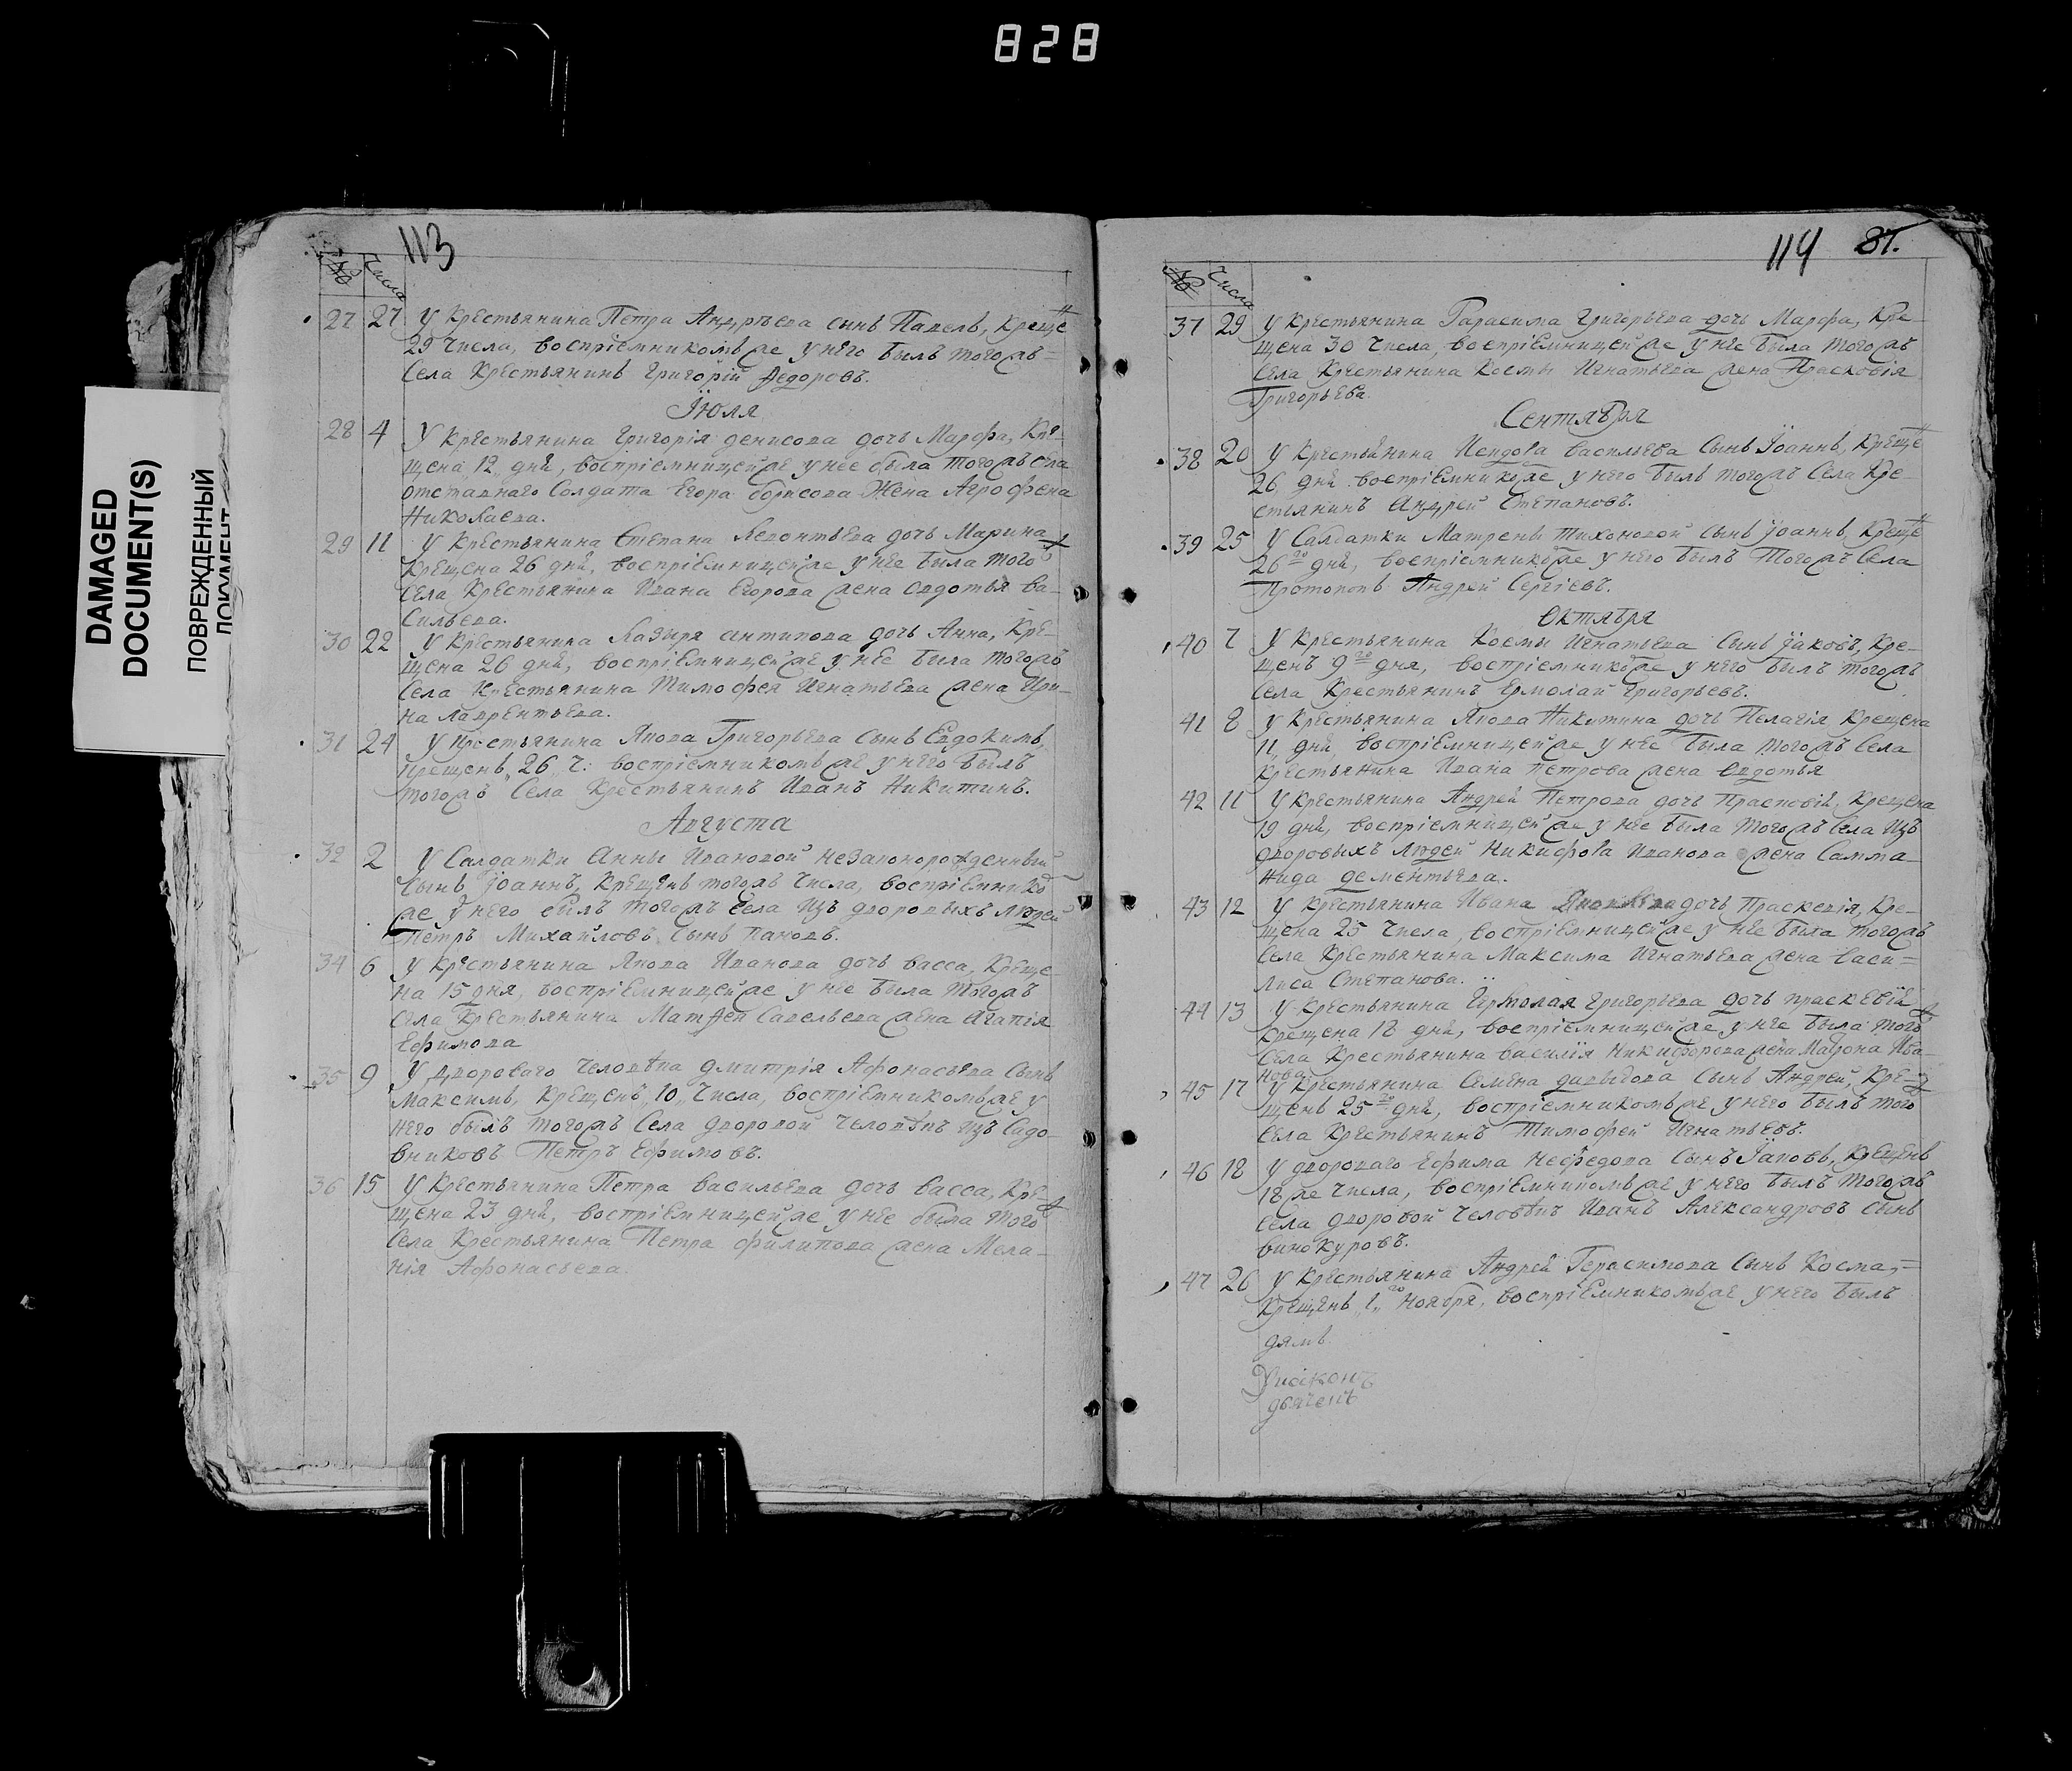 828
DAMAGED
DOCUMENT(S)
ПОВРЕЖДЕННЫЙ
ДОКУМЕНТ
113
№ Числа
27 27 У Крестьянина Петра Андрѣева сынъ Павелъ, Креще
29 числа, воспріемникомъ же у него былъ тогожъ=
села Крестьянинъ Григорій Ѳедоровъ.
Іюля
28 4 У Крестьянина Григорія Денисова дочь Марфа, Кре-
щена 12 дня, воспріемницей же у нее была тогожъ села
отставнаго Солдата Егора Борисова Жена Агрофена
Николаева.
29 11 У Крестьянина Степана Леонтьева дочь Марина
Крещена 26 дня, воспріемницей же у нее была того
села Крестьянина Ивана Егорова жена Овдотья Ва-
сильева.
30 22 У Крестьянина Лазыря Антипова дочь Анна, Кре-
щена 26 дня, воспріемницей же у нее была тогожъ
села Крестьянина Тимофея Игнатьева жена Ири-
на Лаврентьева.
31 24 У Крестьянина Якова Григорьева сынъ Евдокимъ,
Крещенъ 26 ч: воспріемникомъ же у него былъ
тогожъ села Крестьянинъ Иванъ Никитинъ.
Августа
32 2 У Салдатки Анны Ивановой незаконорожденный
сынъ Іоаннъ, Крещенъ тогожъ числа, воспріемнико
же у него былъ тогожъ села изъ дворовыхъ людей
Петръ Михайловъ сынъ Пановъ.
34 6 У Крестьянина Якова Иванова дочь Васса, Креще-
на 15 дня, воспріемницей же у нее была тогожъ
села Крестьянина Матѳея Савельева жена Агапія
Ефимова
35 9 У Дворового человѣка Дмитрія Афонасьева сынъ
Максимъ, Крещенъ 10 числа, воспріемникомъ же у
него былъ тогожъ села дворовой человѣкъ изъ Садо-
вниковъ Петръ Ефимовъ.
36 15 У Крестьянина Петра Васильева дочь Васса, Кре-
щена 23 дня, воспріемницей же у нее была того
села Крестьянина Петра Филипова жена Мела-
нія Афонасьева.
114 87.
№ Числа
37 29 У Крестьянина Гарасима Григорьева дочь Марфа, Кре-
щена 30 числа, воспріемницей же у нее была тогожъ
села Крестьянина Космы Игнатьева жена Прасковія
Григорьева.
Сентября
38 20 У Крестьянина Васильева Сынъ Іоаннъ, Креще
26 дня воспріемнико же у него былъ тогожъ Села Кре-
стьянинъ Андрей Степановъ.
39 25 У Салдатки Матрены Тихоновой сынъ Іоаннъ, Креще
26го дня, воспріемнико же у него былъ тогожъ Села
Протопопъ Андрей Сергіевъ.
Октября
40 7 У Крестьянина Космы Игнатьева Сынъ Іаковъ, Кре-
щенъ 9го дня, воспріемнико же у него былъ тогожъ
села Крестьянинъ Ермолай Григорьевъ.
41 8 У Крестьянина Якова Никитина дочь Пелагія Крещена
11 дня воспріемницей же у нее была тогожъ Села
Крестьянина Ивана Петрова жена Овдотья
42 11 У Крестьянина Андрея Петрова дочь Прасковія, Крещена
19 дня, воспріемницей же у нее была тогожъ Села изъ
дворовыхъ людей Никифора Иванова жена Салма-
нида Дементьева.
43 12 У Крестьянина Ивана дочь Праскевія, Кре-
щена 25 числа, воспріемницей же у нее была тогожъ
села Крестьянина Максима Игнатьева жена Васи=
лиса Степанова.
44 13 У Крестьянина Ермолая Григорьева дочь Праскевія
Крещена 18 дня, воспріемницей же у нее была того
Села Крестьянина Василія Никифорова жена Матрона Ива-
нова.
45 17 У Крестьянина Семена Давыдова Сынъ Андрей, Кре-
щенъ 25го дня, воспріемникомъ же у него былъ того
села Крестьянинъ Тимофей Игнатьевъ.
46 18 У двороваго Ефима Нефедова Сынъ Іаковъ, Крещенъ
18 же числа, воспріемникомъ же у него былъ тогожъ
села дворовой человѣкъ Иванъ Александровъ сынъ
Винокуровъ.
47 26 У Крестьянина Андрея Герасимова Сынъ Косма,=
Крещенъ 1го Ноября, воспріемникомъ же у него былъ